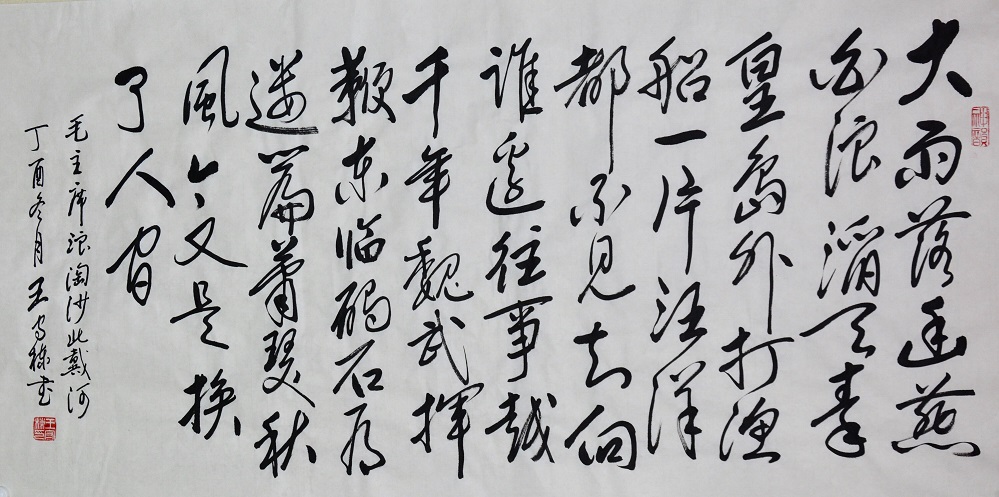 大雨落幽燕
白浪滔天秦
皇島外打渔
船一片汪洋
都不见知向
誰邊往事越
千年魏武揮
鞭东临碣石有
遺篇萧瑟秋
風今又是换
了人间
毛主席浪淘沙北戴河
丁酉冬月王书